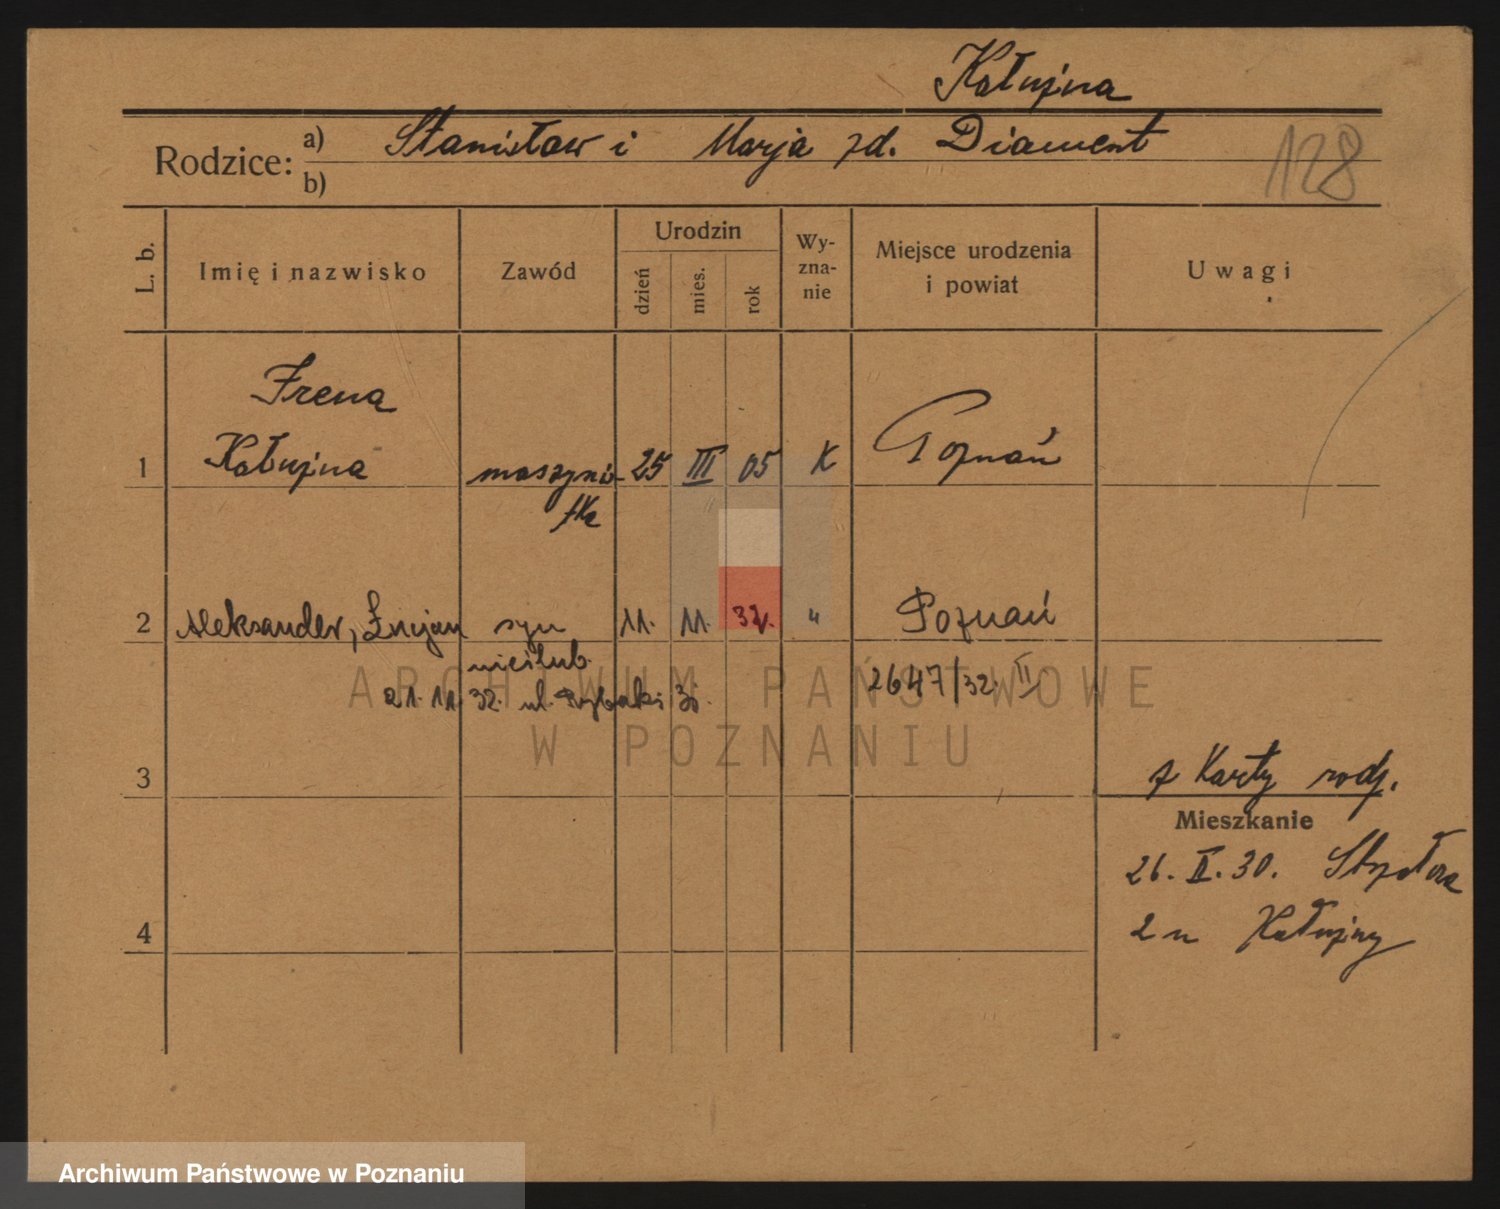 Kałużna
Rodzice: a) Stanisław i Marja zd. Diament
b)
128
L. b.
Imię i nazwisko
Zawód
Urodzin
dzień
mies.
rok
Wy-
zna-
nie
Miejsce urodzenia
i powiat
Uwagi
Irena
1 Kałużna maszynis- 25 III 05 K Poznań
tka
2 Aleksander, Lucjan syn 11. 11. 32. " Poznań
nieślub.
21. 11. 32. ul. Rybaki 30. 2647/32. II
ARCHIWUM PAŃSTWOWE
W POZNANIU
3
z Karty rodz.
Mieszkanie
26. II. 30. Strzałowa
2 u Kałużny
4
Archiwum Państwowe w Poznaniu